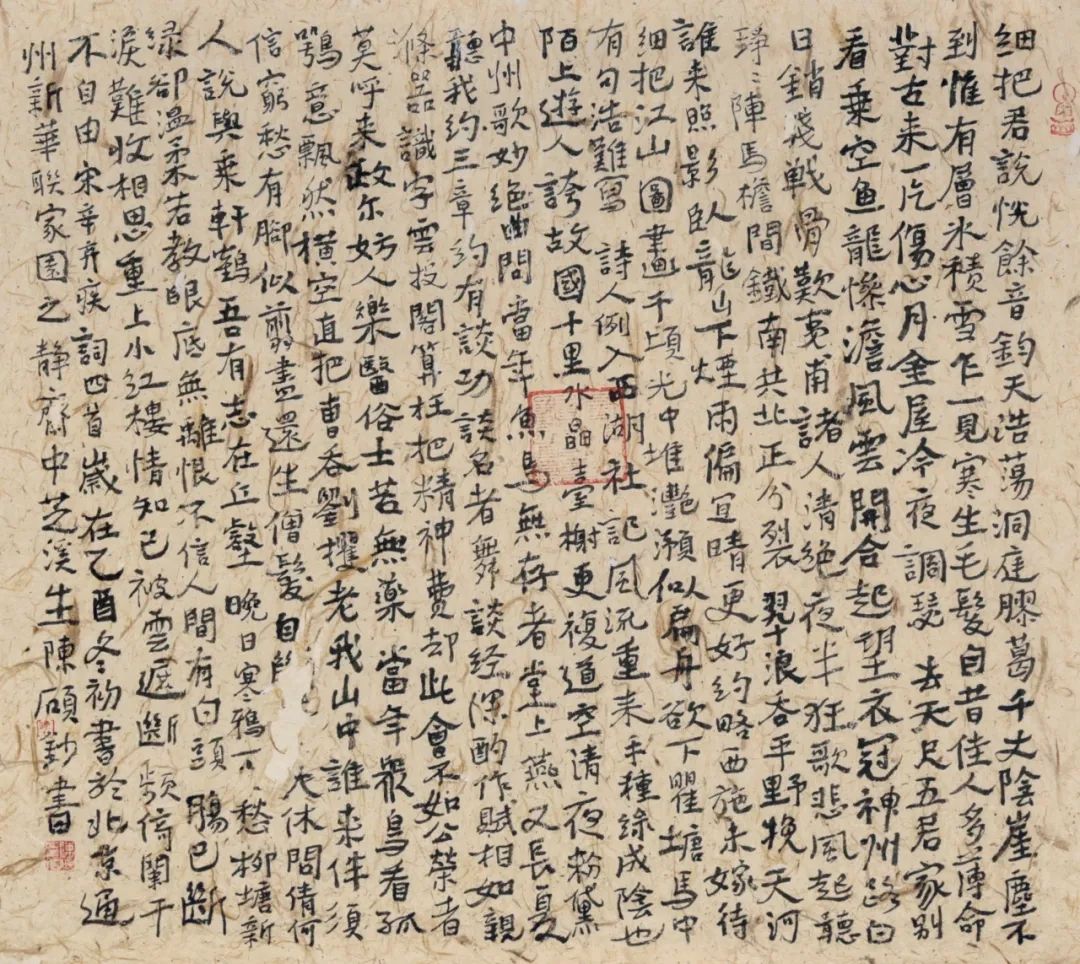 细把君説恍餘音鈞天浩蕩洞庭膠葛千丈陰崖塵不
到惟有層冰積雪乍一見寒生毛髮自昔佳人多薄命
對古来一片傷心月金屋冷夜調瑟 去天尺五君家別
看乗空魚龍惨澹風雲開合起望衣冠神州路白
日銷殘戦骨歎夷甫諸人清絶夜半狂歌悲風起聽
錚〻陣馬檐間鐵南共北正分裂 翠浪吞平野挽天河
誰来照影卧龍山下煙雨偏宜晴更好約略西施未嫁待
细把江山圖畫千頃光中堆灧澦似扁舟欲下瞿塘馬中
有句浩難寫 詩人例入西湖社記風流重来手種緑成陰也
陌上遊人誇故國十里水晶臺榭更複道空清夜粉黛
中州歌妙絶曲問當年魚鳥無存者堂上燕又長夏
聽我約三章約有談功談名者舞談経深酌作賦相如親
滌器識字雲投閣算枉把精神費却此會不如公榮者
莫呼来政尔妨人樂醫俗士苦無藥 當年衆鳥看孤
鶚意飄然横空直把曹吞劉攫老我山中誰来伴須
信窮愁有脚似剪盡還生僧髮自 休問倩何
人説與乗軒鶴吾有志在丘壑 晩日寒鴉 愁柳塘新
緑卻温柔若教眼底無離恨不信人間有白頭 腸已斷
淚難收相思重上小紅樓情知已被雲遮斷頻倚闌干
不自由宋辛弃疾詞四首歲在乙酉冬初書於北京通
州新華聯家園之静齋中芝溪生陳碩鈔書